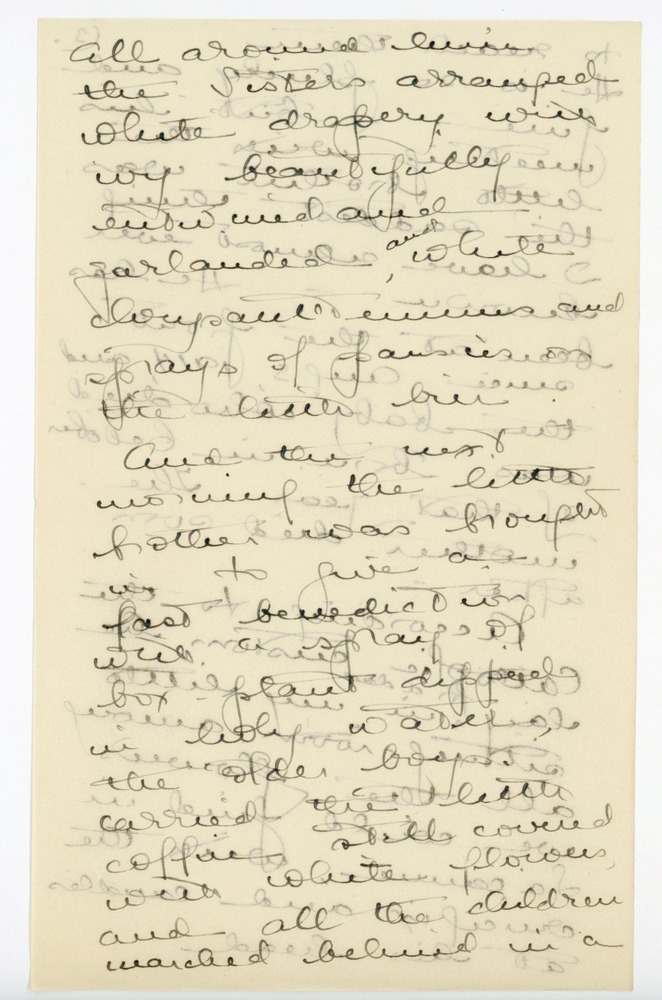 all around him
the Sisters arranged
white drapery with
ivy beautifully
entwined and
garlanded, and white
chrysanthemums and
sprays of pansies on
the little bier.
And the next
morning the little
brother was brought
in to give a
last benediction
with a spray of
box-plant dipped
in holy water,
the older boys
carried the little
coffin still covered
with white flowers,
and all the children
marched behind in a